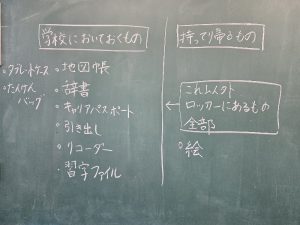 学校においておくもの
・クラレットケース
・たんけん
バッグ
・地図帳
・辞書
・キャリアパスポート
・引き出し
・リコーダー
・習字ファイル
持って帰るもの
これ以外
ロッカーにあるもの
全部
・絵